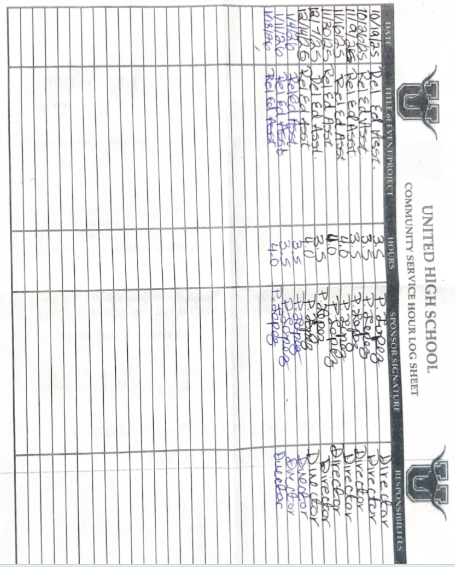 UNITED HIGH SCHOOL
COMMUNITY SERVICE HOUR LOG SHEET
DATE TITLE of EVENT/PROJECT HOURS SPONSOR SIGNATURE RESPONSIBILITES
10/19/25 Rel Ed Asst. 3.5 P. Lopez Director
10/26/25 Rel Ed Asst 3.5 P. Lopez Director
11/9/25 Rel Ed Asst 3.5 P. Lopez Director
11/16/25 Rel Ed Asst 4.0 P. Lopez Director
11/30/25 Rel Ed Asst 4.0 P. Lopez Director
12/7/25 Rel Ed Asst. 3.5 P. Lopez Director
12/14/25 Rel Ed Asst 4.0 P. Lopez Director
1/4/26 Rel Ed Asst 3.5 P. Lopez Director
1/11/26 Rel Ed Asst 3.5 P. Lopez Director
1/18/26 Rel Ed Asst 4.0 P. Lopez Director